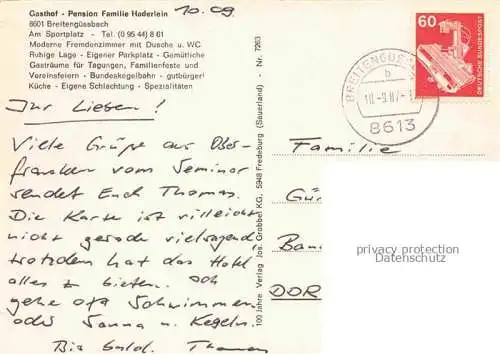 Gasthof - Pension Familie Haderlein
8601 Breitengüssbach
Am Sportplatz - Tel. (0 95 44) 8 61
Moderne Fremdenzimmer mit Dusche u. WC
Ruhige Lage - Eigener Parkplatz - Gemütliche
Gasträume für Tagungen, Familienfeste und
Vereinsfeiern - Bundeskegelbahn - gutbürgerl
Küche - Eigene Schlachtung - Spezialitäten
10.09
Ihr Lieben!
Viele Grüße aus Ober-
franken vom Seminar
sendet Euch Thomas.
Die Karte ist vielleicht
nicht gerade vielsagend,
trotzdem hat das Hotel
alles zu bieten. Ich
gehe oft Schwimmen
oder Sauna u. Kegeln.
Bis bald. Thomas
100 Jahre Verlag Jos. Grobbel KG, 5948 Fredeburg (Sauerland) - Nr. 7263
60
DEUTSCHE BUNDESPOST
b
8613
Familie
DDR
privacy protection
©Mehlis.eu